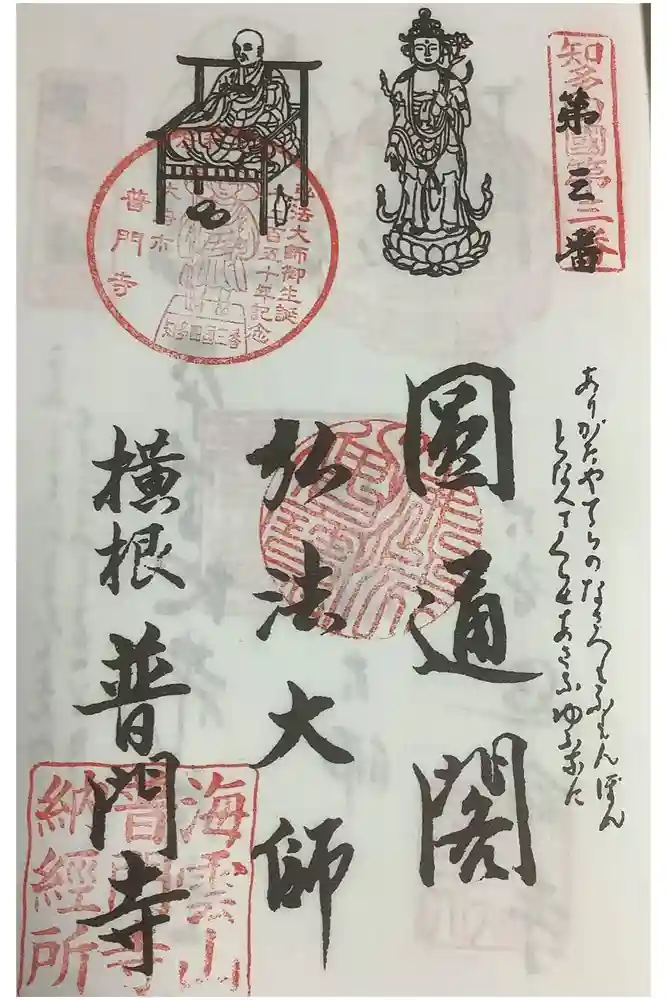 知多四國第三番
第三番
ありがたやてらのなさへもふもんぼん
となへてくらせあさなゆふなに
圓通閣
弘法大師
横根 普門寺
弘法大師御生誕
千二百五十年記念
大府市
普門寺
知多四国三番
海雲山
普門寺
納經所